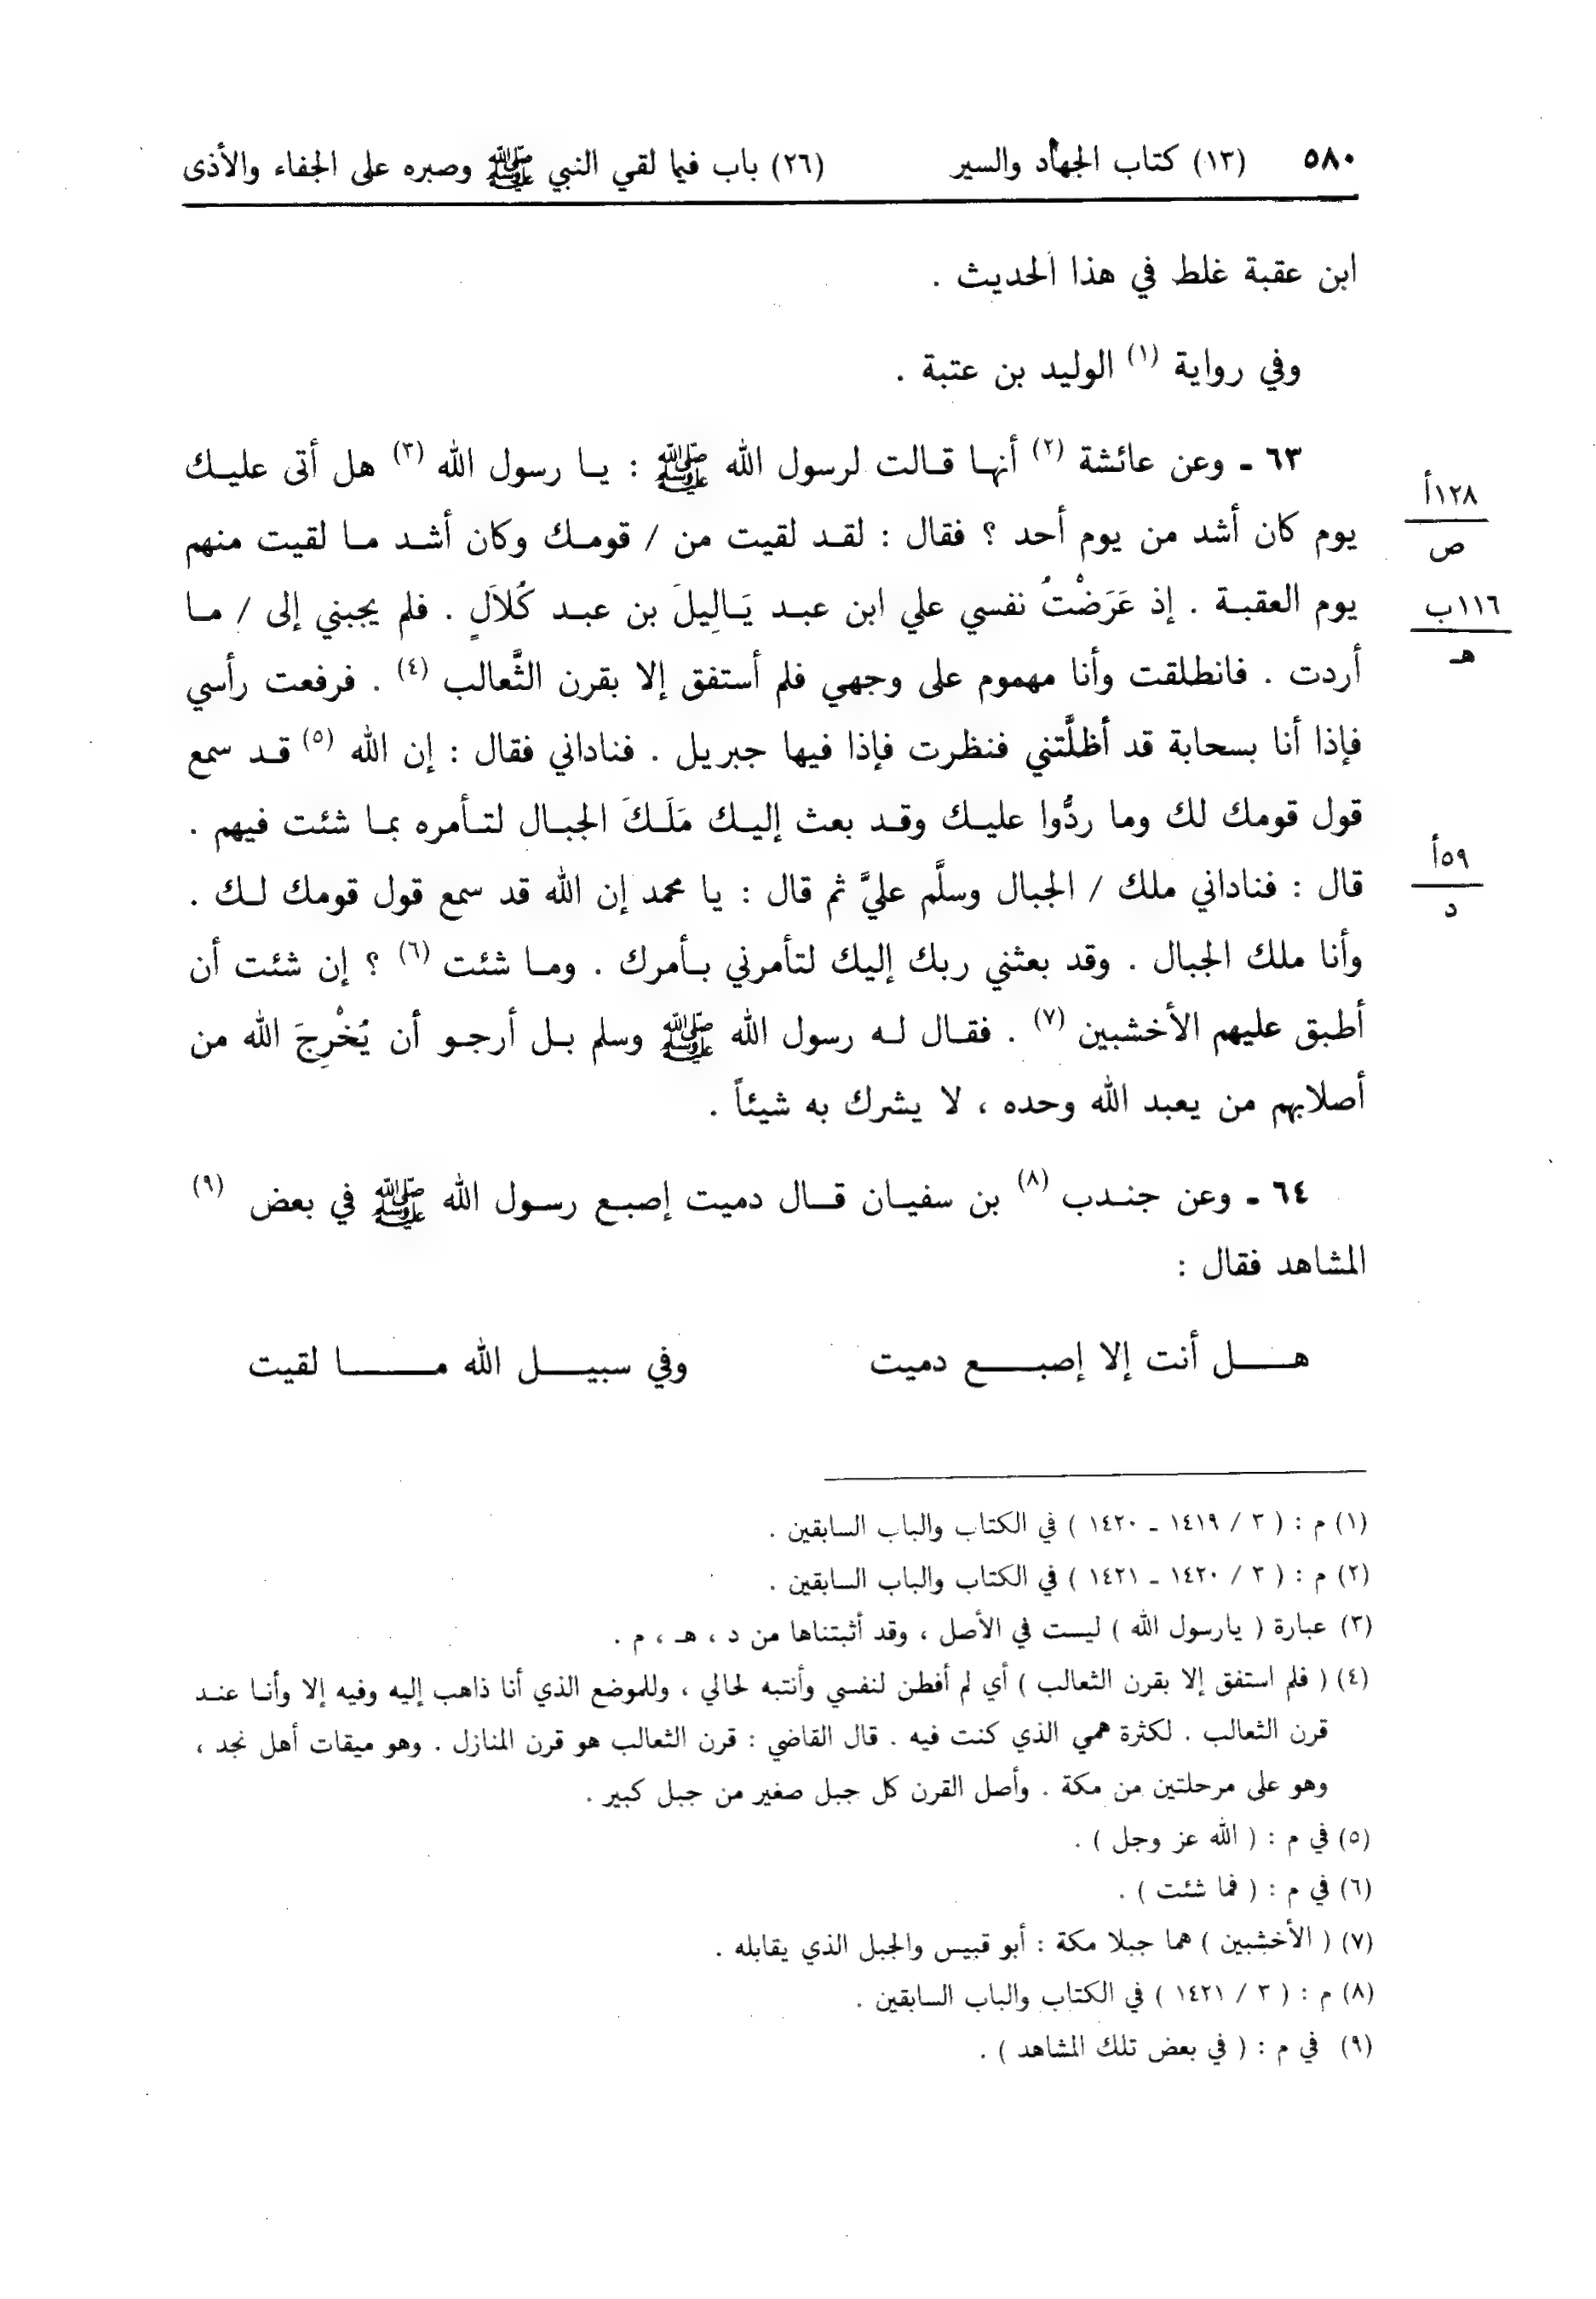 ٥٨٠ (١٣) كتاب الجهاد والسير (٢٦) باب فيما لقي النبي ﷺ وصبره على الجفاء والأذى
ابن عقبة غلط في هذا الحديث .
وفي رواية (١) الوليد بن عتبة .
٦٣ ـ وعن عائشة (٢) أنها قالت لرسول الله ﷺ : يا رسول الله (٣) هل أتى عليك
يوم كان أشد من يوم أحد ؟ فقال : لقد لقيت من / قومك وكان أشد ما لقيت منهم
١٢٨أ
ص
يوم العقبة . إذ عَرَضْتُ نفسي علي ابن عبد يَالِيلَ بن عبد كُلاَلٍ . فلم يجبني إلى / ما
١١٦ب
هـ
أردت . فانطلقت وأنا مهموم على وجهي فلم أستفق إلا بقرن الثَّعالب (٤) . فرفعت رأسي
فإذا أنا بسحابة قد أظلَّتني فنظرت فإذا فيها جبريل . فناداني فقال : إن الله (٥) قد سمع
قول قومك لك وما ردُّوا عليك وقد بعث إليك مَلَكَ الجبال لتأمره بما شئت فيهم .
قال : فناداني ملك / الجبال وسلَّم عليَّ ثم قال : يا محمد إن الله قد سمع قول قومك لك .
٥٩أ
د
وأنا ملك الجبال . وقد بعثني ربك إليك لتأمرني بأمرك . وما شئت (٦) ؟ إن شئت أن
أطبق عليهم الأخشبين (٧) . فقال له رسول الله ﷺ وسلم بل أرجو أن يُخْرِجَ الله من
أصلابهم من يعبد الله وحده ، لا يشرك به شيئاً .
٦٤ ـ وعن جندب (٨) بن سفيان قال دميت إصبع رسول الله ﷺ في بعض (٩)
المشاهد فقال :
هل أنت إلا إصبع دميت وفي سبيل الله ما لقيت
(١) م : ( ٣ / ١٤١٩ ـ ١٤٢٠ ) في الكتاب والباب السابقين .
(٢) م : ( ٣ / ١٤٢٠ ـ ١٤٢١ ) في الكتاب والباب السابقين .
(٣) عبارة ( يارسول الله ) ليست في الأصل ، وقد أثبتناها من د ، هـ ، م .
(٤) ( فلم استفق إلا بقرن الثعالب ) أي لم أفطن لنفسي وأنتبه لحالي ، وللموضع الذي أنا ذاهب إليه وفيه إلا وأنا عند
قرن الثعالب . لكثرة همي الذي كنت فيه . قال القاضي : قرن الثعالب هو قرن المنازل . وهو ميقات أهل نجد ،
وهو على مرحلتين من مكة . وأصل القرن كل جبل صغير من جبل كبير .
(٥) في م : ( الله عز وجل ) .
(٦) في م : ( فما شئت ) .
(٧) ( الأخشبين ) هما جبلا مكة : أبو قبيس والجبل الذي يقابله .
(٨) م : ( ٣ / ١٤٢١ ) في الكتاب والباب السابقين .
(٩) في م : ( في بعض تلك المشاهد ) .